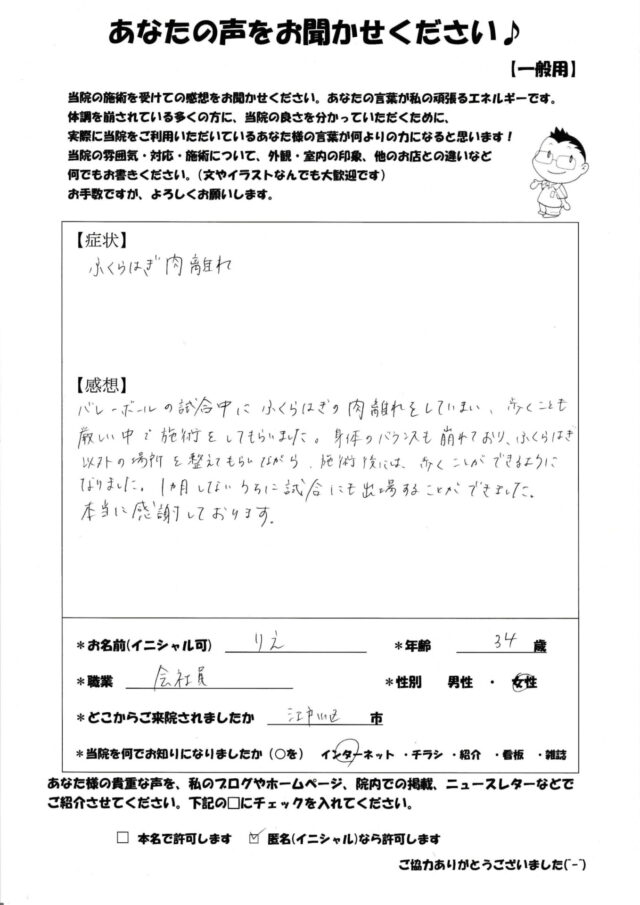 あなたの声をお聞かせください♪
【一般用】
当院の施術を受けての感想をお聞かせください。あなたの言葉が私の頑張るエネルギーです。
体調を崩されている多くの方に、当院の良さを分かっていただくために、
実際に当院をご利用いただいているあなた様の言葉が何よりの力になると思います！
当院の雰囲気・対応・施術について、外観・室内の印象、他のお店との違いなど
何でもお書きください。（文やイラストなんでも大歓迎です）
お手数ですが、よろしくお願いします。
【症状】
ふくらはぎ肉離れ
【感想】
バレーボールの試合中にふくらはぎの肉離れをしてしまい、歩くことも
厳しい中で施術をしてもらいました。身体のバランスも崩れており、ふくらはぎ
以外の場所を整えてもらいながら、施術後には、歩くことができるように
なりました。1ヵ月しないうちに試合にも出場することができました。
本当に感謝しております。
＊お名前(イニシャル可) りえ ＊年齢 34 歳
＊職業 会社員 ＊性別 男性 ・ 女性
＊どこからご来院されましたか 江戸川区 市
＊当院を何でお知りになりましたか（○を） インターネット ・チラシ ・紹介 ・看板 ・雑誌
あなた様の貴重な声を、私のブログやホームページ、院内での掲載、ニュースレターなどで
ご紹介させてください。下記の□にチェックを入れてください。
□ 本名で許可します ☑ 匿名(イニシャル)なら許可します
ご協力ありがとうございました(´ｰ`)